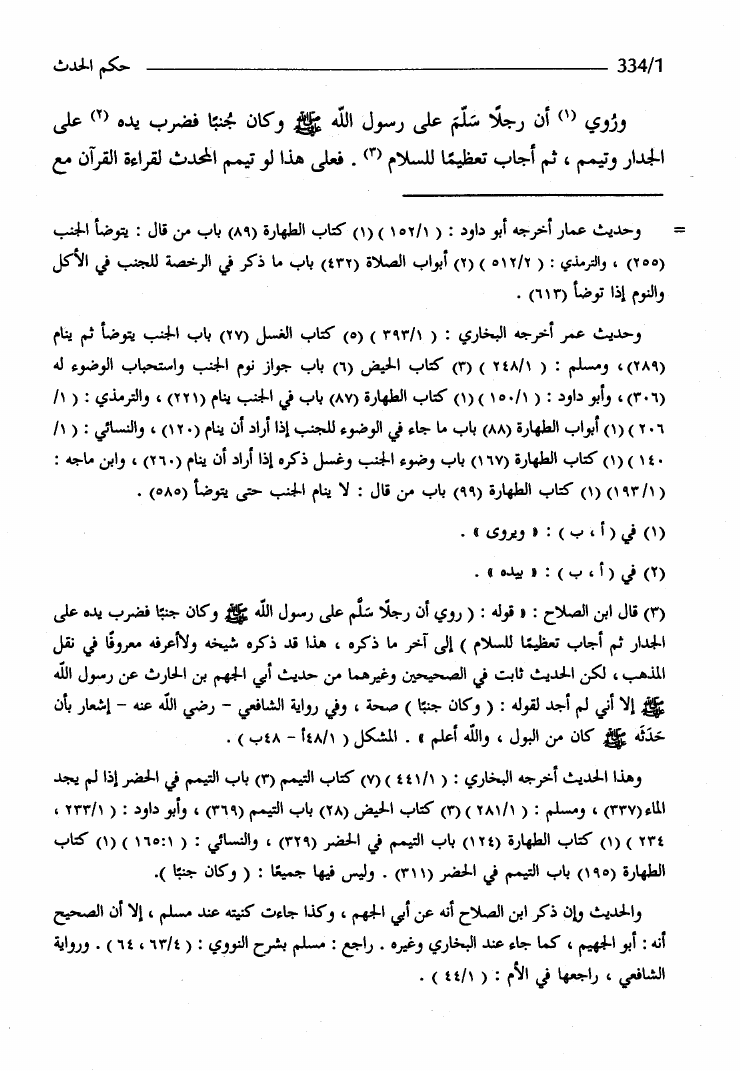 334/1 حكم الحدث
ورُوي (١) أن رجلًا سَلَّمَ على رسول الله ﷺ وكان جُنبًا فضرب يده (٢) على
الجدار وتيمم ، ثم أجاب تعظيمًا للسلام (٣) . فعلى هذا لو تيمم المحدث لقراءة القرآن مع
= وحديث عمار أخرجه أبو داود : ( ١٥٢/١ ) (١) كتاب الطهارة (٨٩) باب من قال : يتوضأ الجنب
(٢٥٥) ، والترمذي : ( ٥١٢/٢ ) (٢) أبواب الصلاة (٤٣٢) باب ما ذكر في الرخصة للجنب في الأكل
والنوم إذا توضأ (٦١٣) .
وحديث عمر أخرجه البخاري : ( ٣٩٣/١ ) (٥) كتاب الغسل (٢٧) باب الجنب يتوضأ ثم ينام
(٢٨٩)، ومسلم : ( ٢٤٨/١ ) (٣) كتاب الحيض (٦) باب جواز نوم الجنب واستحباب الوضوء له
(٣٠٦)، وأبو داود : ( ١٥٠/١ ) (١) كتاب الطهارة (٨٧) باب في الجنب ينام (٢٢١) ، والترمذي : ( ١/
٢٠٦ ) (١) أبواب الطهارة (٨٨) باب ما جاء في الوضوء للجنب إذا أراد أن ينام (١٢٠) ، والنسائي : ( ١/
١٤٠ ) (١) كتاب الطهارة (١٦٧) باب وضوء الجنب وغسل ذكره إذا أراد أن ينام (٢٦٠) ، وابن ماجه :
( ١٩٣/١) (١) كتاب الطهارة (٩٩) باب من قال : لا ينام الجنب حتى يتوضأ (٥٨٥) .
(١) في ( أ ، ب ) : « ويروى » .
(٢) في ( أ ، ب ) : « بيده » .
(٣) قال ابن الصلاح : « قوله : ( روي أن رجلًا سَلَّم على رسول الله ﷺ وكان جنبًا فضرب يده على
الجدار ثم أجاب تعظيمًا للسلام ) إلى آخر ما ذكره ، هذا قد ذكره شيخه ولاأعرفه معروفًا في نقل
المذهب ، لكن الحديث ثابت في الصحيحين وغيرهما من حديث أبي الجهم بن الحارث عن رسول الله
ﷺ إلا أني لم أجد لقوله : ( وكان جنبًا ) صحة ، وفي رواية الشافعي - رضي الله عنه - إشعار بأن
حَدَثَه ﷺ كان من البول ، والله أعلم » . المشكل ( ٤٨/١أ - ٤٨ب ) .
وهذا الحديث أخرجه البخاري : ( ٤٤١/١ ) (٧) كتاب التيمم (٣) باب التيمم في الحضر إذا لم يجد
الماء (٣٣٧) ، ومسلم : ( ٢٨١/١ ) (٣) كتاب الحيض (٢٨) باب التيمم (٣٦٩) ، وأبو داود : ( ٢٣٣/١ ،
٢٣٤ ) (١) كتاب الطهارة (١٢٤) باب التيمم في الحضر (٣٢٩) ، والنسائي : ( ١٦٥:١ ) (١) كتاب
الطهارة (١٩٥) باب التيمم في الحضر (٣١١) . وليس فيها جميعًا : ( وكان جنبًا ).
والحديث وإن ذكر ابن الصلاح أنه عن أبي الجهم ، وكذا جاءت كنيته عند مسلم ، إلا أن الصحيح
أنه : أبو الجهيم ، كما جاء عند البخاري وغيره . راجع : مسلم بشرح النووي : ( ٦٣/٤ ، ٦٤ ) . ورواية
الشافعي ، راجعها في الأم : ( ٤٤/١ ) .